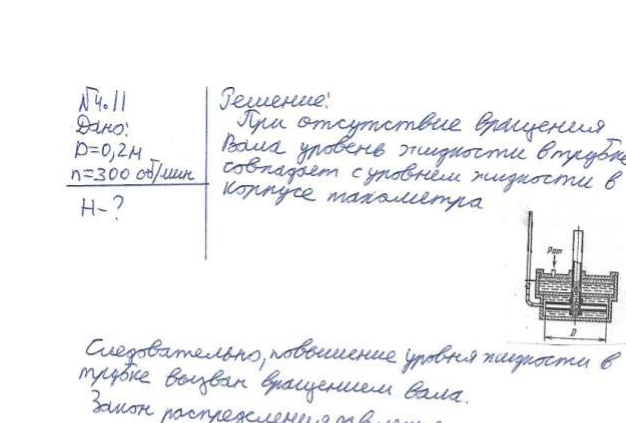 №4.11
Дано:
D=0,2м
n=300 об/мин
H-?
Решение:
При отсутствие вращения
вала уровень жидкости в трубке
совпадает с уровнем жидкости в
корпусе тахометра
Pат
D
Следовательно, повышение уровня жидкости в
трубке вызван вращением вала.
Закон распределения